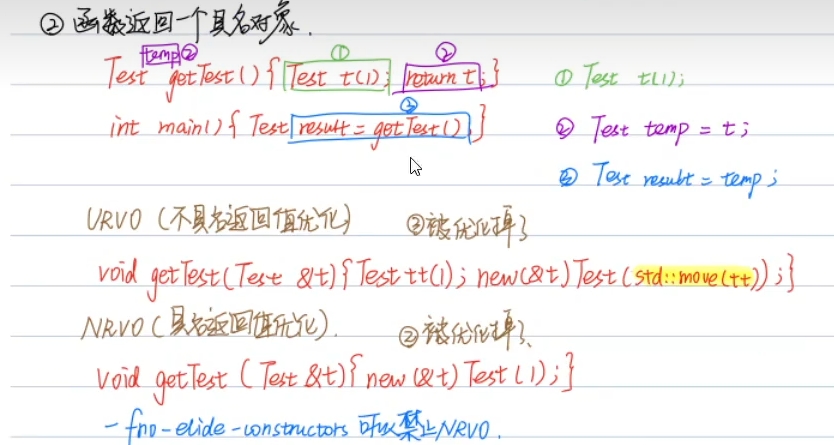 ② 函数返回一个具名对象.
temp ② ① ②
Test getTest() { Test t(1); return t; } ① Test t(1);
③
int main() { Test result = getTest() } ② Test temp = t;
③ Test result = temp;
URVO (不具名返回值优化) ③被优化掉了
void getTest(Test &t) { Test tt(1); new(&t) Test(std::move(tt)); }
NRVO (具名返回值优化). ②被优化掉了.
void getTest (Test &t) { new(&t) Test(1); }
-fno-elide-constructors 可以禁止NRVO.